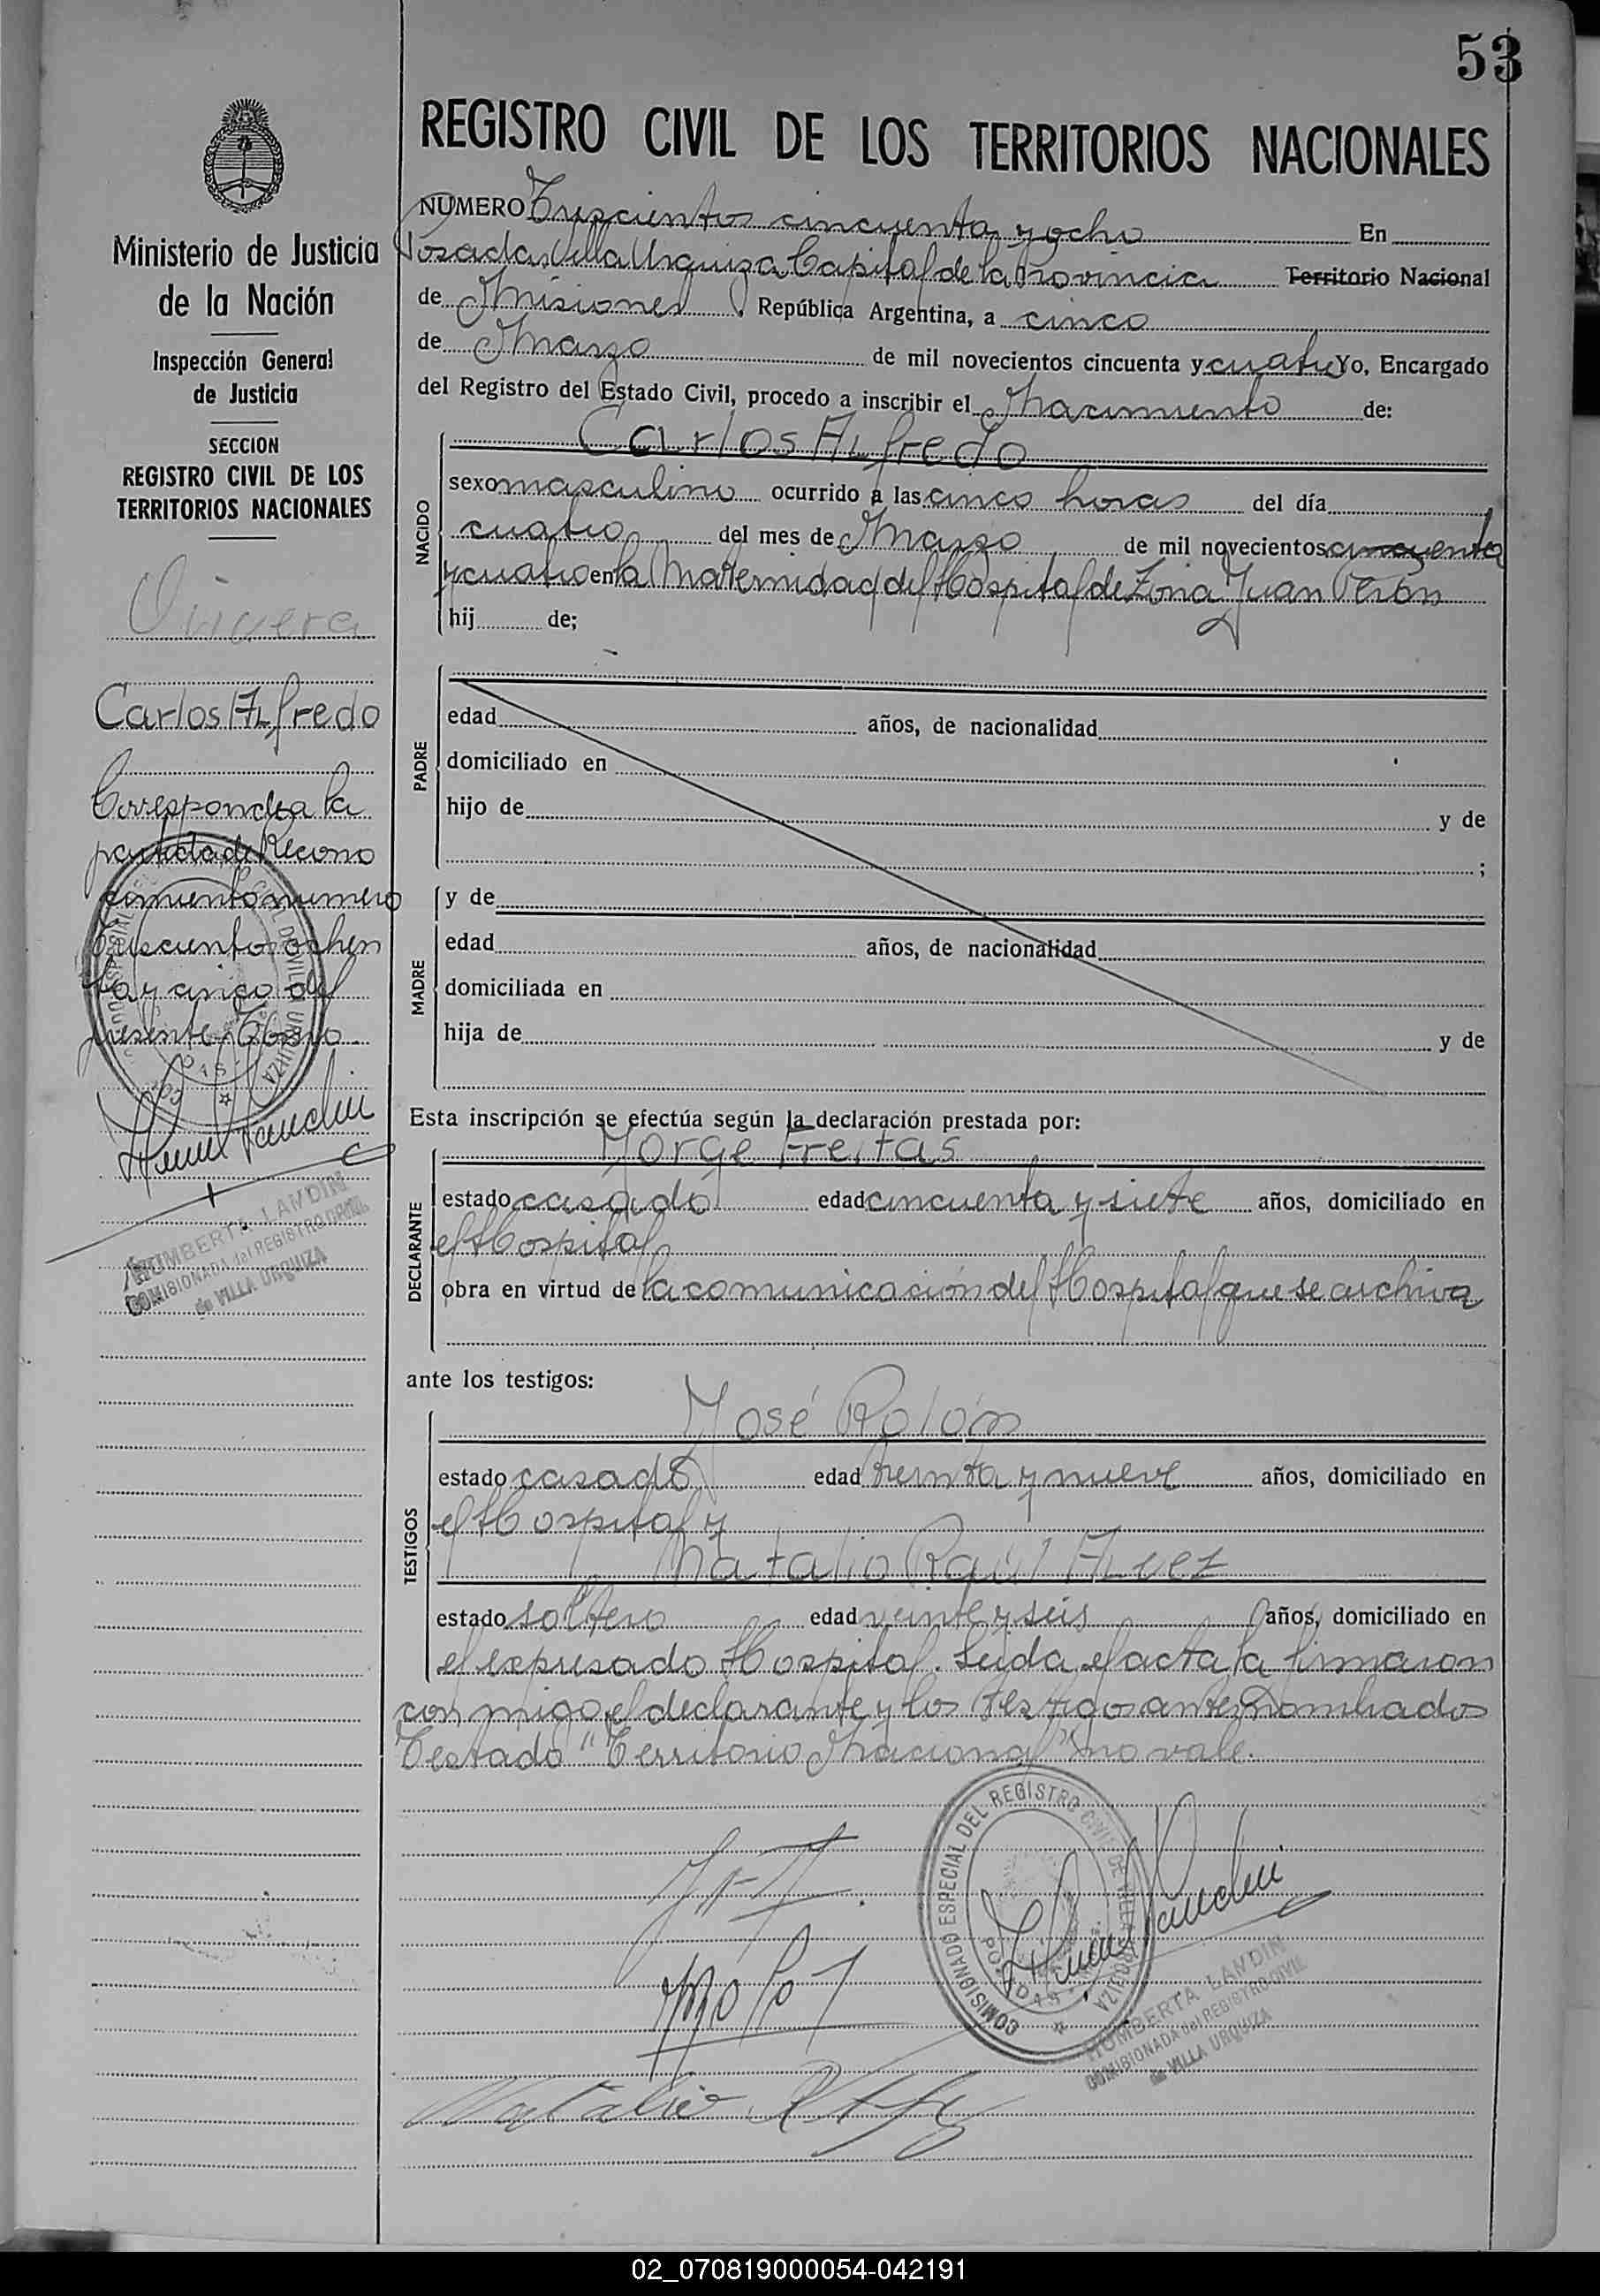 53
REGISTRO CIVIL DE LOS TERRITORIOS NACIONALES
Ministerio de Justicia
de la Nación
Inspección General
de Justicia
SECCION
REGISTRO CIVIL DE LOS
TERRITORIOS NACIONALES
Carlos Alfredo
Corresponde a la
partida de Recono
cimiento numero
trescientos ochen
ta y cinco del
presente Tomo.
HUMBERTA LANDIN
COMISIONADA del REGISTRO CIVIL
de VILLA URQUIZA
NUMERO Trescientos cincuenta y ocho En
Posadas, Villa Urquiza Capital de la Provincia Territorio Nacional
de Misiones, República Argentina, a cinco
de Marzo de mil novecientos cincuenta y cuatro Yo, Encargado
del Registro del Estado Civil, procedo a inscribir el Nacimiento de:
NACIDO
Carlos Alfredo
sexo masculino ocurrido a las cinco horas del día
cuatro del mes de Marzo de mil novecientos cincuenta
y cuatro en la Maternidad del Hospital de Zona Juan Perón
hij de;
PADRE
edad años, de nacionalidad
domiciliado en
hijo de y de
;
MADRE
y de
edad años, de nacionalidad
domiciliada en
hija de y de
Esta inscripción se efectúa según la declaración prestada por:
DECLARANTE
Jorge Freitas
estado casado edad cincuenta y siete años, domiciliado en
el Hospital
obra en virtud de la comunicación del Hospital que se archiva
ante los testigos:
TESTIGOS
José Rolón
estado casado edad treinta y nueve años, domiciliado en
el Hospital y
Natalio Raúl Alvez
estado soltero edad veinte y seis años, domiciliado en
el expresado Hospital. Leída el acta la firmaron
con migo el declarante y los testigos antes nombrados
Testado "Territorio Nacional" no vale.
COMISIONADO ESPECIAL DEL REGISTRO CIVIL DE VILLA URQUIZA
POSADAS
HUMBERTA LANDIN
COMISIONADA del REGISTRO CIVIL
de VILLA URQUIZA
Natalio
02_070819000054-042191